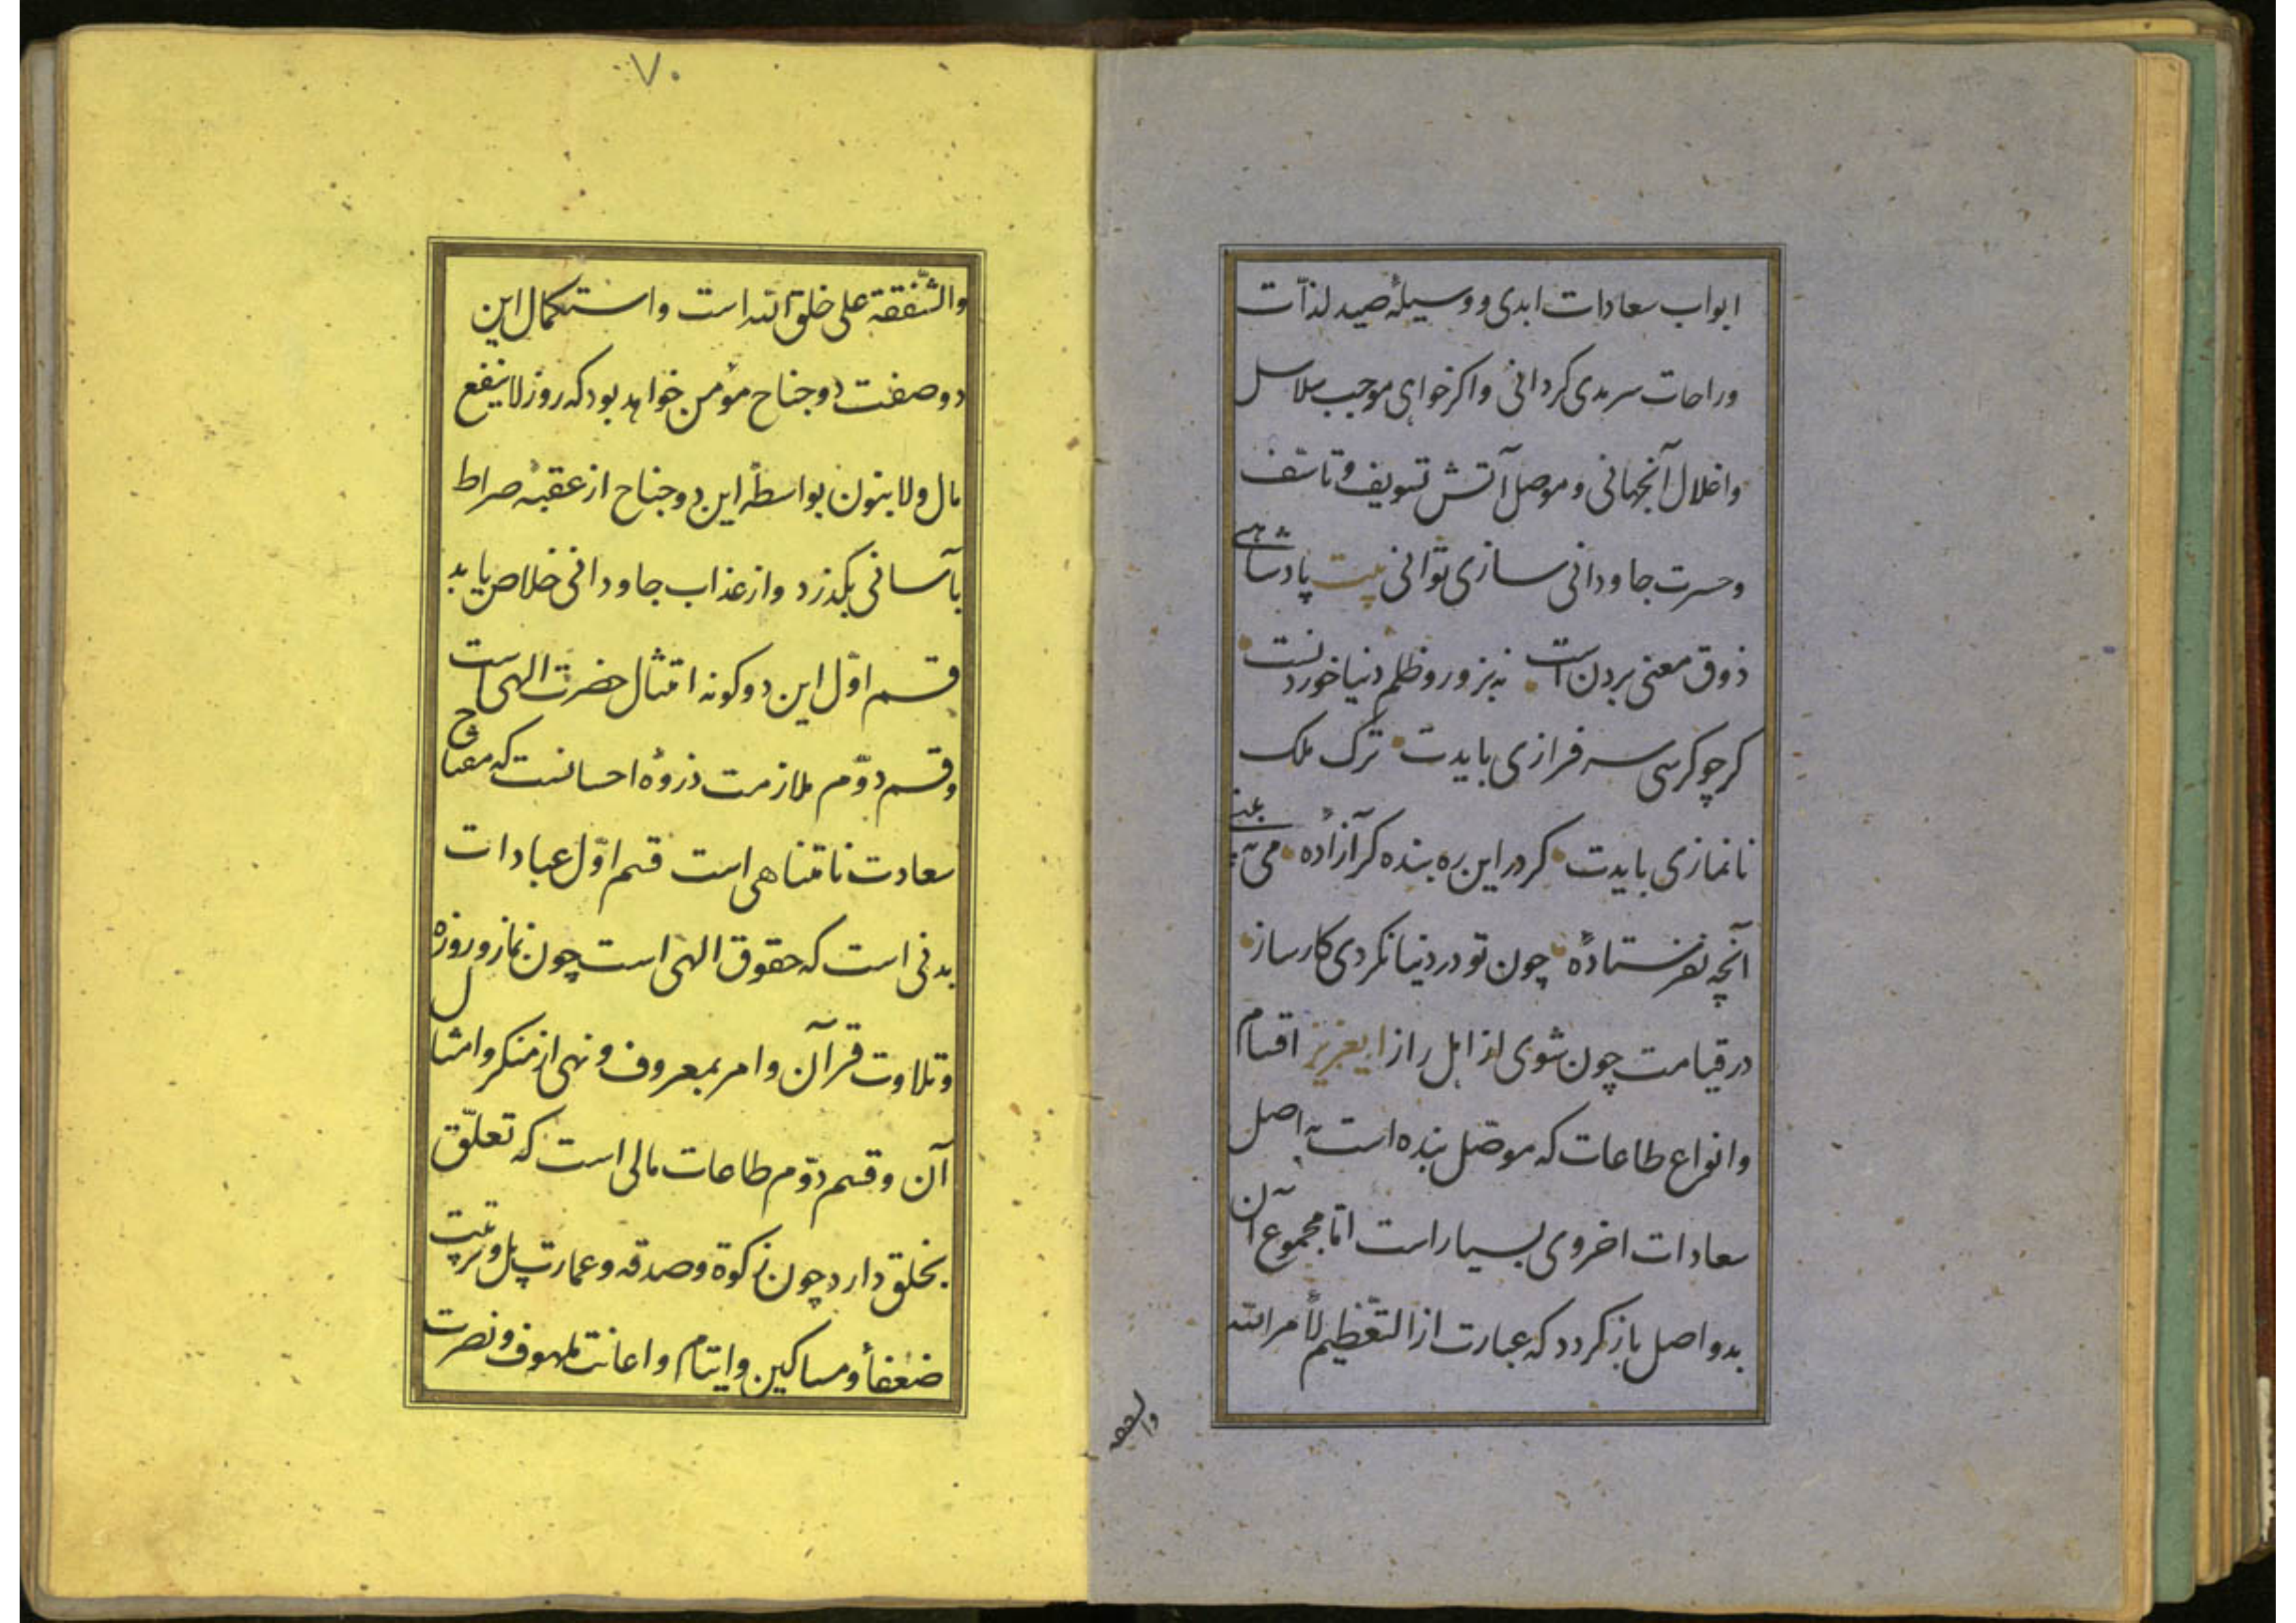 ابواب سعادات ابدی و وسیلهٔ صید لذّات
وراحات سرمدی کردانی واکر خواهی موجب سلاسل
واغلال آنجهانی وموصل آتش تسویف وتاسّف
وحسرت جاودانی سازی توانی بیت پادشاهی
ذوق معنی بردن است نه بزور وظلم دنیا خوردنست
کر چو کرسی سرفرازی بایدت ترک ملک
نانمازی بایدت کر در این ره بنده کر آزادهٔ
آنچه نفرستادهٔ چون تو در دنیا نکردی کارساز
در قیامت چون شوی از اهل راز ایعزیز اقسام
وانواع طاعات که موصّل بنده است به اصل
سعادات اخروی بسیار است امّا مجموع آن
بدو اصل باز کردد که عبارت از التّعظیم لأمر الله
والشفقه
۷۰
والشّفقة علی خلق الله است واستکمال این
دو صفت دو جناح مؤمن خواهد بود که روز لاینفع
مال ولا بنون بواسطهٔ این دو جناح از عقبهٔ صراط
بآسانی بکذرد واز عذاب جاودانی خلاص یابد
قسم اوّل این دو کونه امتثال حضرت الهی است
وقسم دوّم ملازمت ذروهٔ احسانست که مفتاح
سعادت نامتناهی است قسم اوّل عبادات
بدنی است که حقوق الهی است چون نماز و روزه
وتلاوت قرآن وامر بمعروف ونهی از منکر وامثال
آن وقسم دوّم طاعات مالی است که تعلّق
بخلق دارد چون زکوة وصدقه وعمارت پل وتربیت
ضعفأ ومساکین وایتام واعانت ملهوف ونصرت